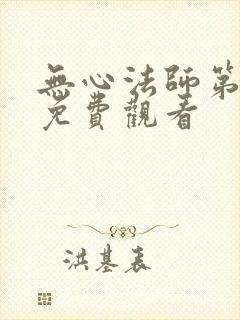 無心法師第
免費觀看
洪基表